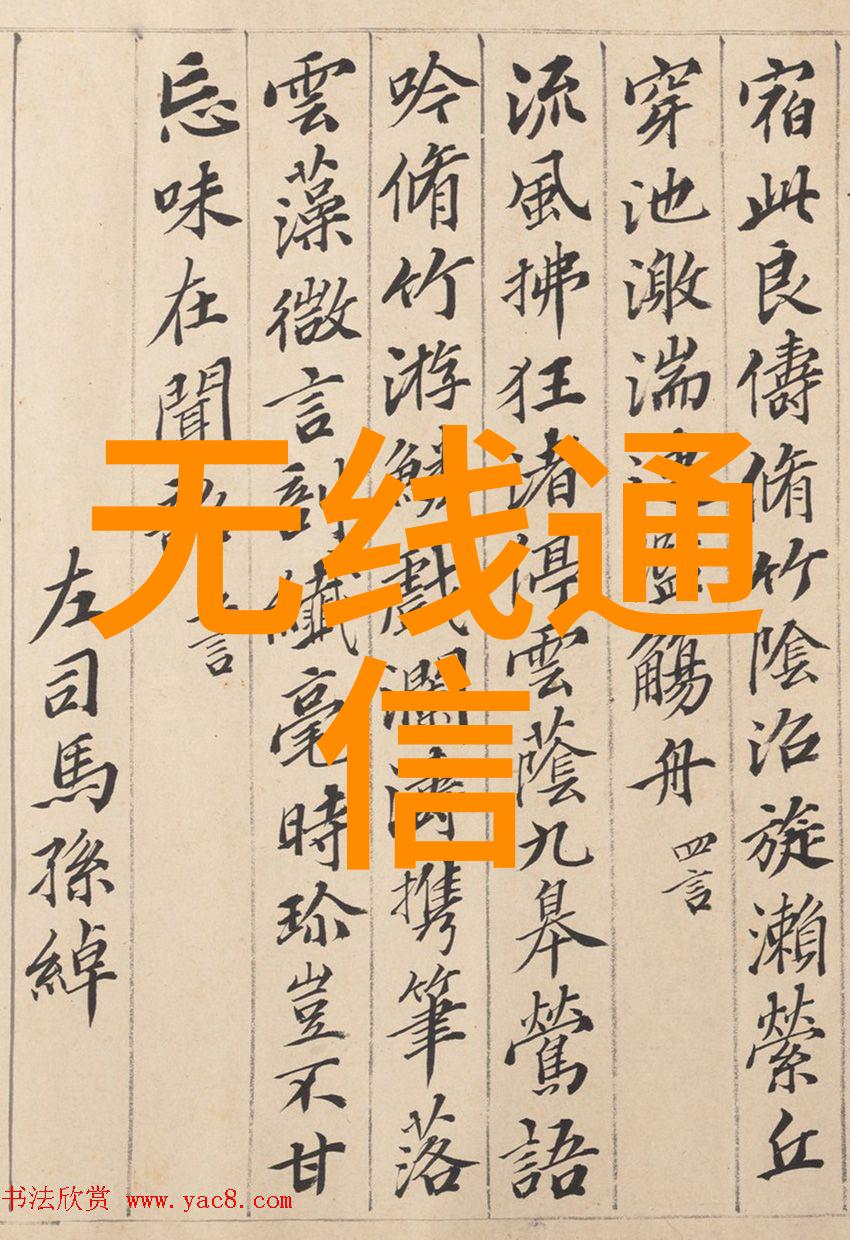 宿此良儔脩竹陰沼旋瀨縈丘
穿池激湍連濫觴舟 四言
流風拂狂渚停雲蔭九皋鶯語
吟脩竹游鱗戲瀾濤攜筆落
雲藻微言剖纖毫時珍豈不甘
忘味在聞韶 言
左司馬孫綽
无线通
信
书法欣赏 www.yac8.com